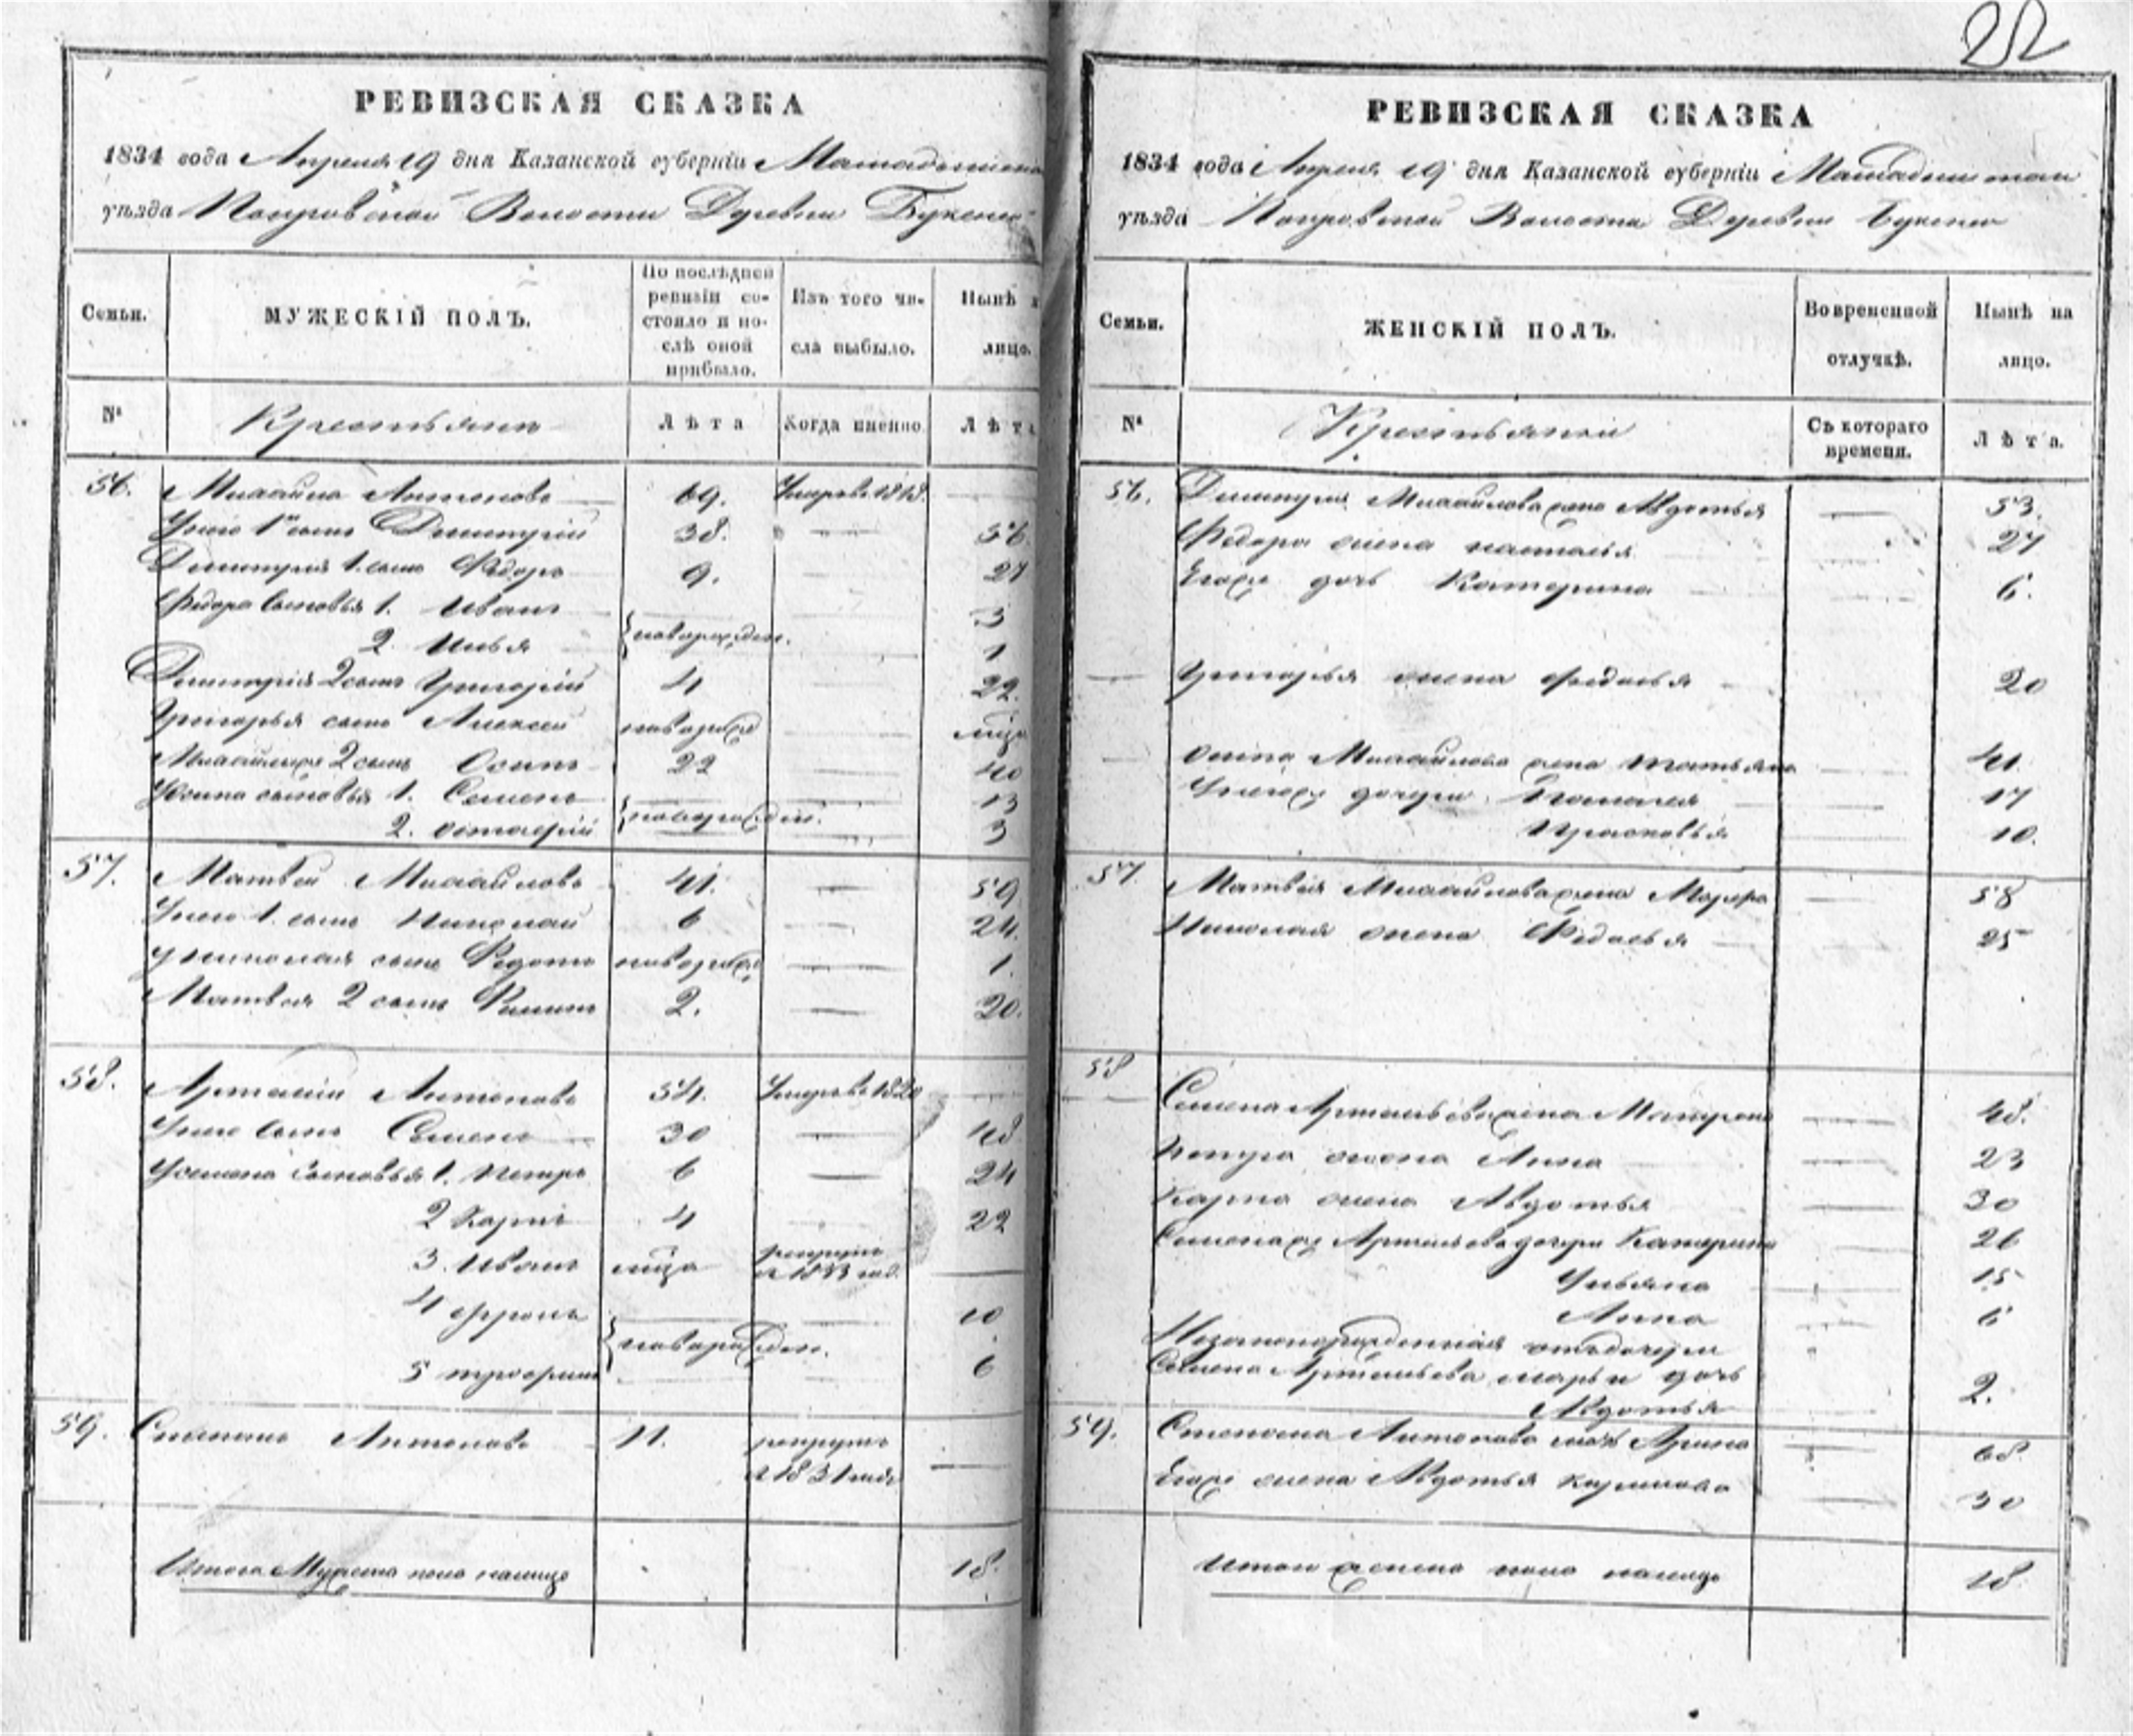 22
РЕВИЗСКАЯ СКАЗКА
1834 года Апреля 19 дня Казанской губерніи
уѣзда Волости Деревни
Семьи.
МУЖЕСКІЙ ПОЛЪ.
По послѣдней ревизіи состояло и послѣ оной прибыло.
Изъ того числа выбыло.
Нынѣ лицо.
№
Крестьяне
Лѣта
Когда именно
Лѣта
56. Михайла Антоновъ 69. Умеръ въ 1818.
У него 1й сынъ Димитрій 38. 56
Димитрия 1. сынъ Федоръ 9. 27
Федора сыновья 1. Иванъ 3
2. Илья новорожден. 1
Димитрія 2 сынъ Григорій 4 22
Григорья сынъ Алексей новорожд
2 сынъ Осипъ 22 40
Осипа сыновья 1. Семенъ 13
2. новорожден. 3
57. Матвей Михайловъ 41. 59
У него 1. сынъ Николай 6 24.
У николая сынъ Федотъ новорожд 1.
Матвея 2 сынъ 2. 20.
58. Антоновъ 54. Умеръ в 1820
У него сынъ Семенъ 30 48
У семена сыновья 1. Петръ 6 24
2 Карпъ 4 22
3. Иванъ рекрутъ
4 10
новорожден.
5 6
59. Степанъ Антоновъ 11. рекрутъ
в 1831 годе
Итого Мужеска пола налицо 18.
РЕВИЗСКАЯ СКАЗКА
1834 года Апреля 19 дня Казанской губерніи
уѣзда Волости Деревни
Семьи.
ЖЕНСКІЙ ПОЛЪ.
Во временной отлучкѣ.
Нынѣ на лицо.
№
Крестьянки
Съ котораго времени.
Лѣта.
56. Димитрия Михайлова жена Авдотья 53.
Федора жена наталья 27
Егоже дочь Катерина 6.
Григорья жена 20
Осипа Михайлова жена татьяна 41.
У негоже дочери 17
Прасковья 10.
57. Матвея Михайлова жена 58
Николая жена 25
58
Семена жена Матрена 48.
Петра жена Анна 23
Карпа жена Авдотья 30
дочери Катерина 26
Ульяна 15
Анна 6
Незаконорожденная отъ дочери
Семена марьи дочь
Авдотья 2.
59. Степана Антонова мать Арина 68.
Егоже жена Авдотья 30
Итого женска пола налицо 18